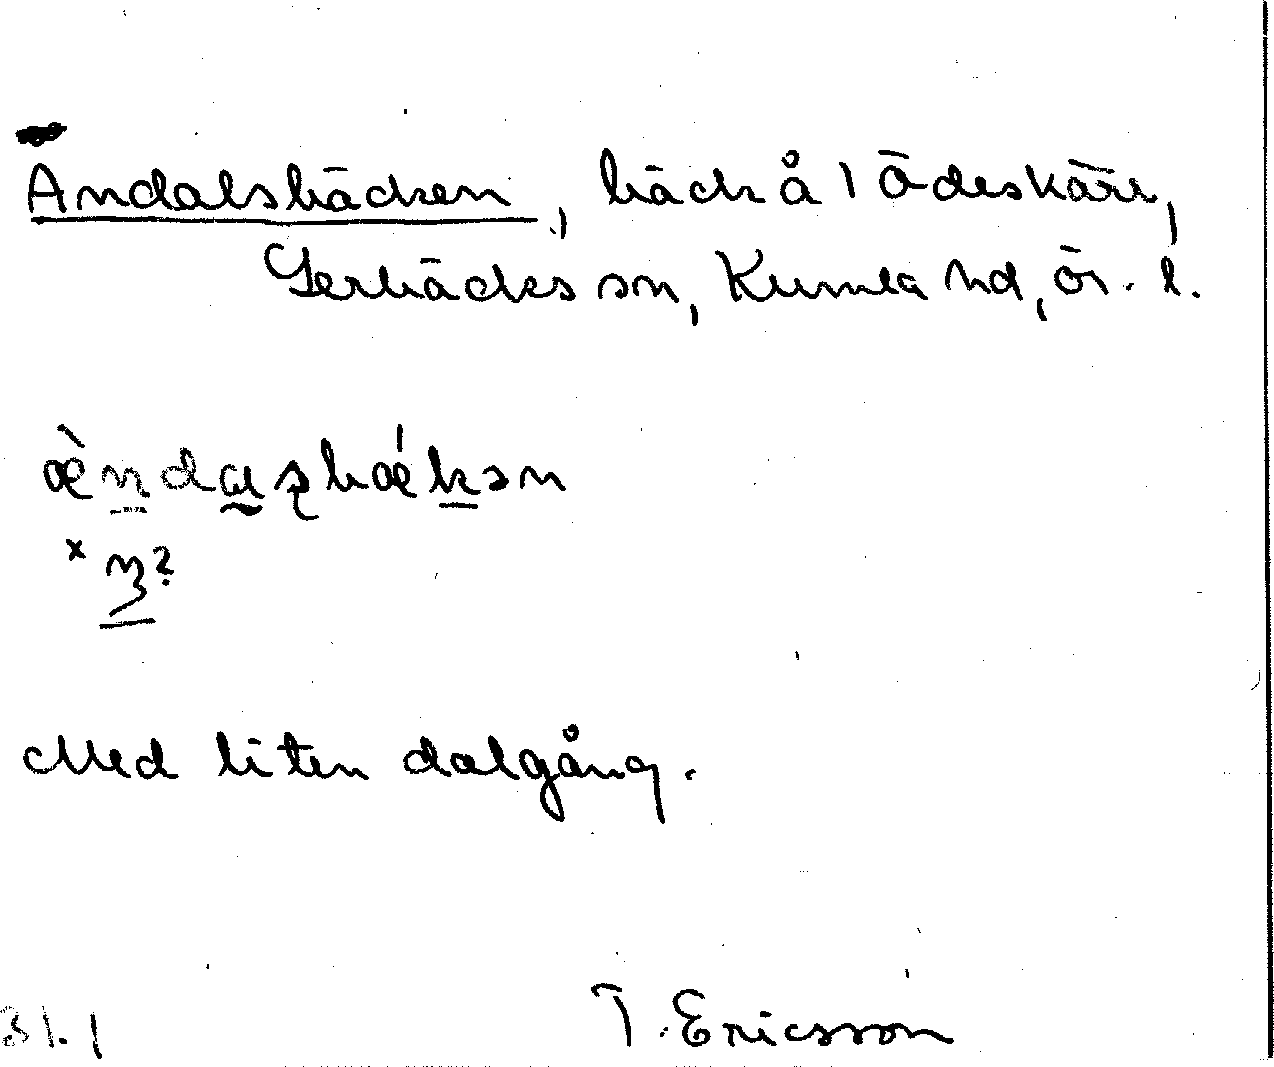 Ändalsbäcken, bäck å 1 Ödeskärr,
Lerbäcks sn, Kumla hd, Ör. l.
æ̀ndaʂbǽkən
× ɳ?
Med liten dalgång.
31.1
T. Ericsson